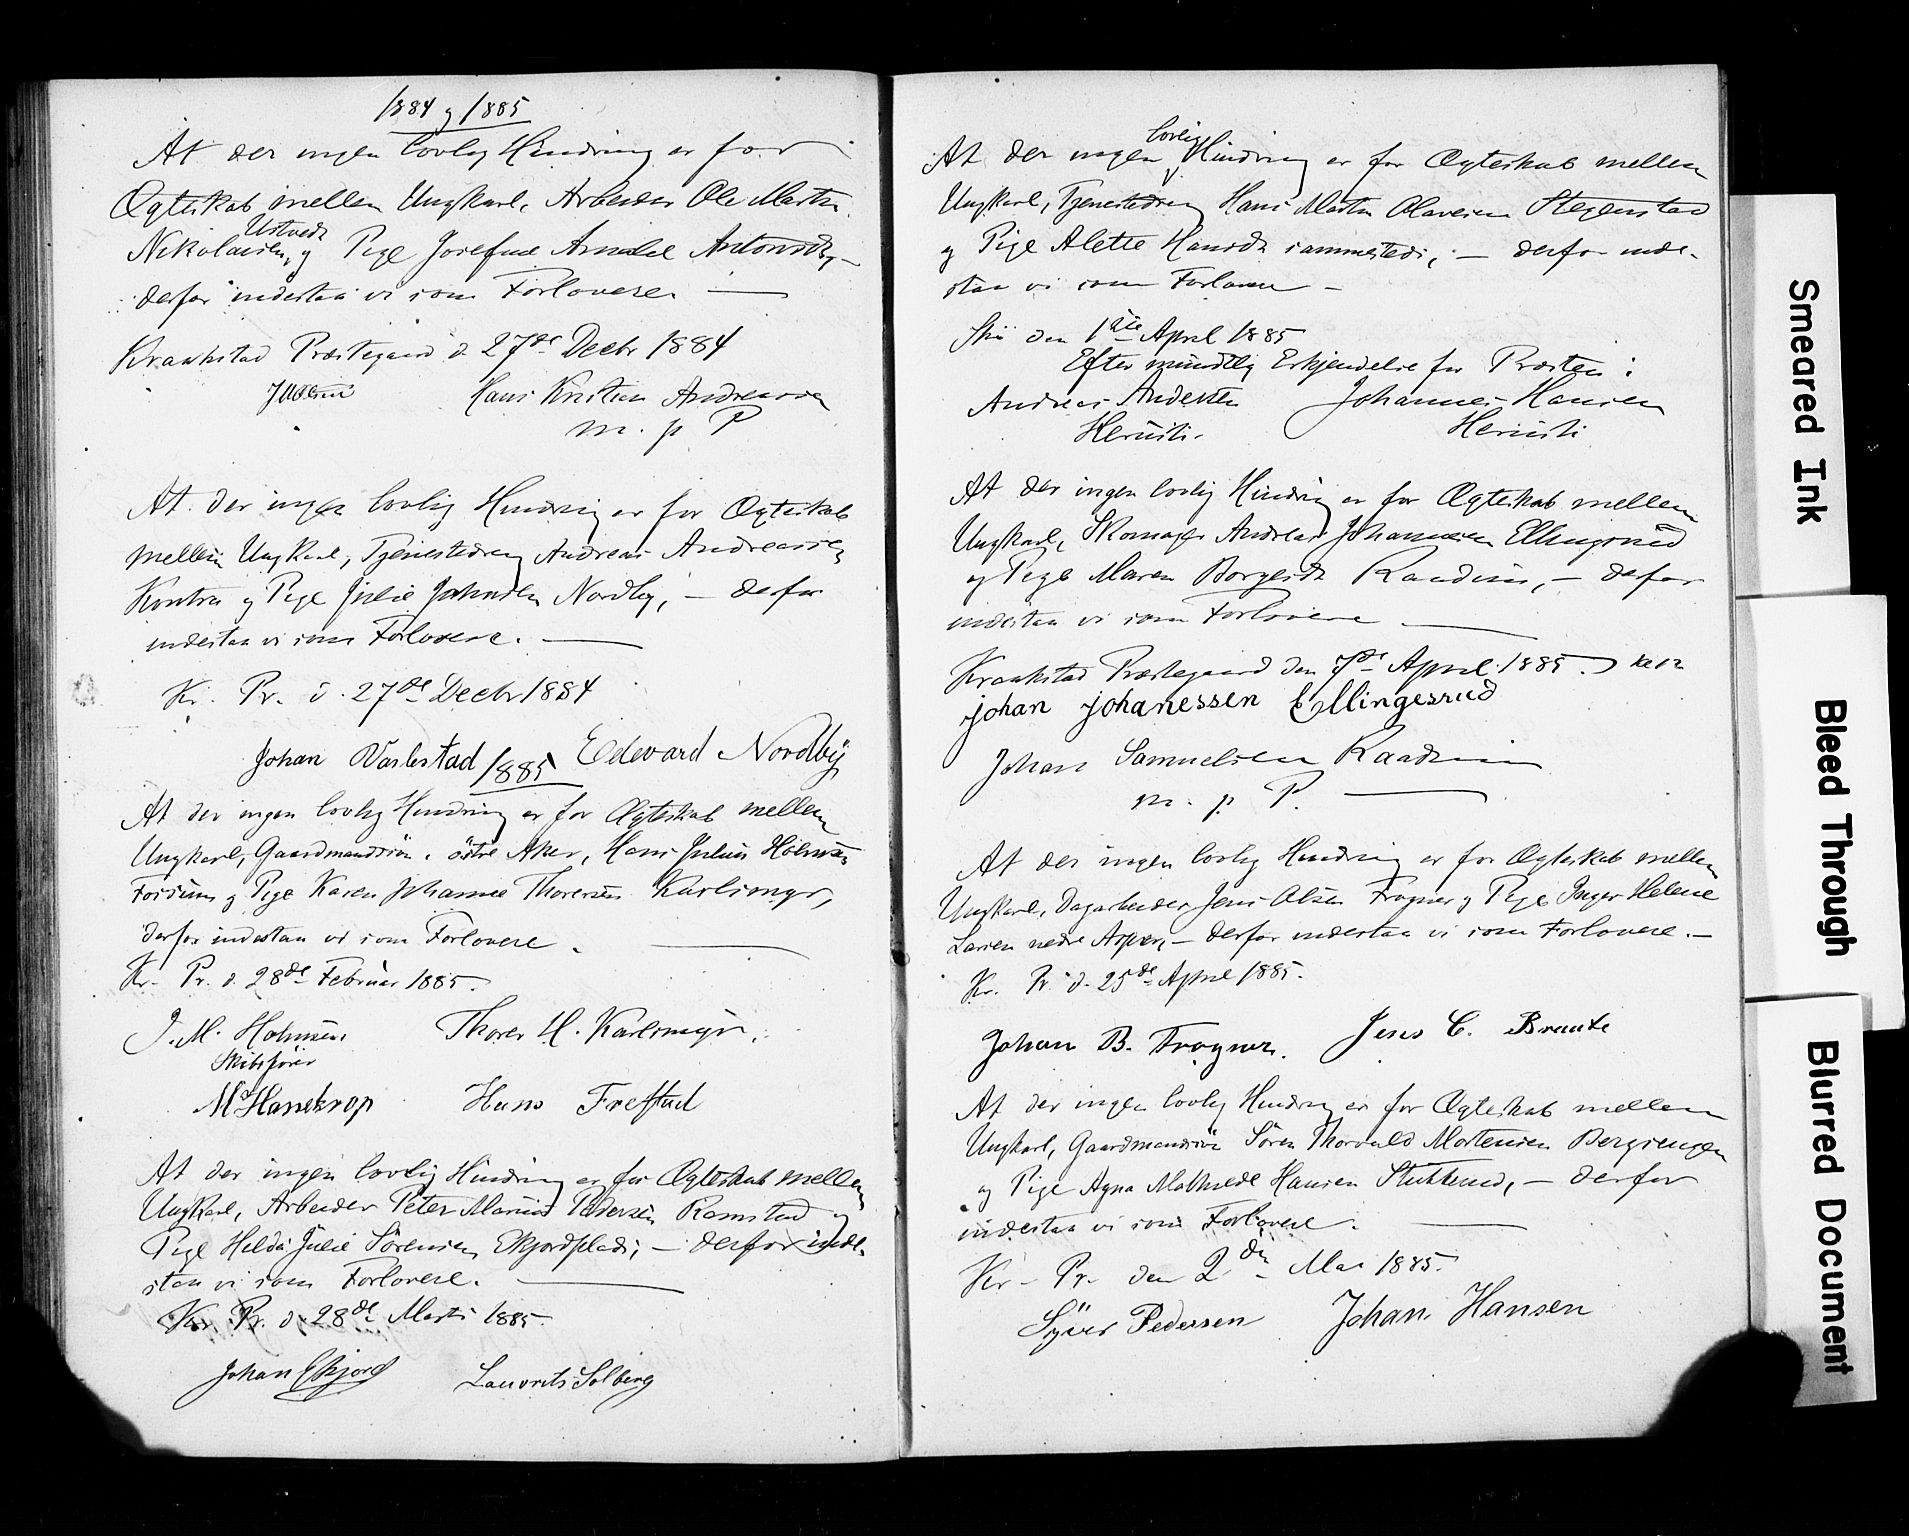 1884 og 1885
At der ingen lovlig Hindring er for
Ægteskab mellem Ungkarl, Arbeider Ole Martin
Ustvedt
Nikolaisen, og Pige Josefine Antonsdtr, —
derfor indestaa vi som Forlovere. —
Kraakstad Præstegaard d 27de Decbr 1884
Hans Kristian Andreassen
m. p. P
At der ingen lovlig Hindring er for Ægteskab
mellem Ungkarl, Tjenestedreng Andreas Andreassen
Kontra og Pige Julie Johnsdtr Nordby, — derfor
indestaa vi som Forlovere. —
Kr. Pr. d. 27de Decbr 1884
Johan Vaslestad Edevard Nordby
1885
At der ingen lovlig Hindring er for Ægteskab mellem
Ungkarl, Gaardmandssøn. østre Aker, Hans Julius Holmsen
og Pige Karen Johanne Thoresen Karlsmyr,
derfor indestaa vi som Forlovere. —
Kr. Pr. d. 28de Februar 1885.
J. M. Holmsen. Thorer H. Karlsmyr.
Skibsfører
M Hanekrop Hans Frestad
At der ingen lovlig Hindring er for Ægteskab mellem
Ungkarl, Arbeider Peter Marius Pedersen Ramstad og
Pige Hilda Julie Sørensen Ekjordplads, — derfor inde-
staa vi som Forlovere. —
Kr. Pr. d. 28de Marts 1885.
Johan Ekjord Lauvrits Solberg
lovlig
At der ingen Hindring er for Ægteskab mellem
Ungkarl, Tjenestedreng Hans Martin Olavesen Stegenstad
og Pige Alette Hansdtr sammesteds, — derfor inde-
staa vi som Forlovere —
Ski den 1ste April 1885
Efter mundtlig Erkjendelse for Præsten:
Andreas Andersen Johannes Hansen
At der ingen lovlig Hindring er for Ægteskab mellem
Ungkarl, Skomager Andreas Johannesen Ellingsrud
og Pige Maren Borgersdtr Raadim, — derfor
indestaa vi som Forlovere —
Kraakstad Præstegaard den 7de April 1885.
Johan Johanessen Ellingesrud
Johan Samuelsen Raadim
m. p. P. —
At der ingen lovlig Hindring er for Ægteskab mellem
Ungkarl, Dagarbeider Jens Olsen Frogner og Pige Inger Helene
Larsen nedre Aspen, — derfor indestaa vi som Forlovere. —
Kr. Pr. d. 25de April 1885.
Johan B. Frogner. Jens C. Braate
At der ingen lovlig Hindring er for Ægteskab mellem
Ungkarl, Gaardmandssøn Søren Thorvald Mortensen Bergsengen
og Pige Agna Mathilde Hansen Stukkerud, — derfor
indestaa vi som Forlovere. —
Kr. Pr. den 2den Mai 1885.
Syver Pedersen Johan Hansen
Smeared Ink
Bleed Through
Blurred Document